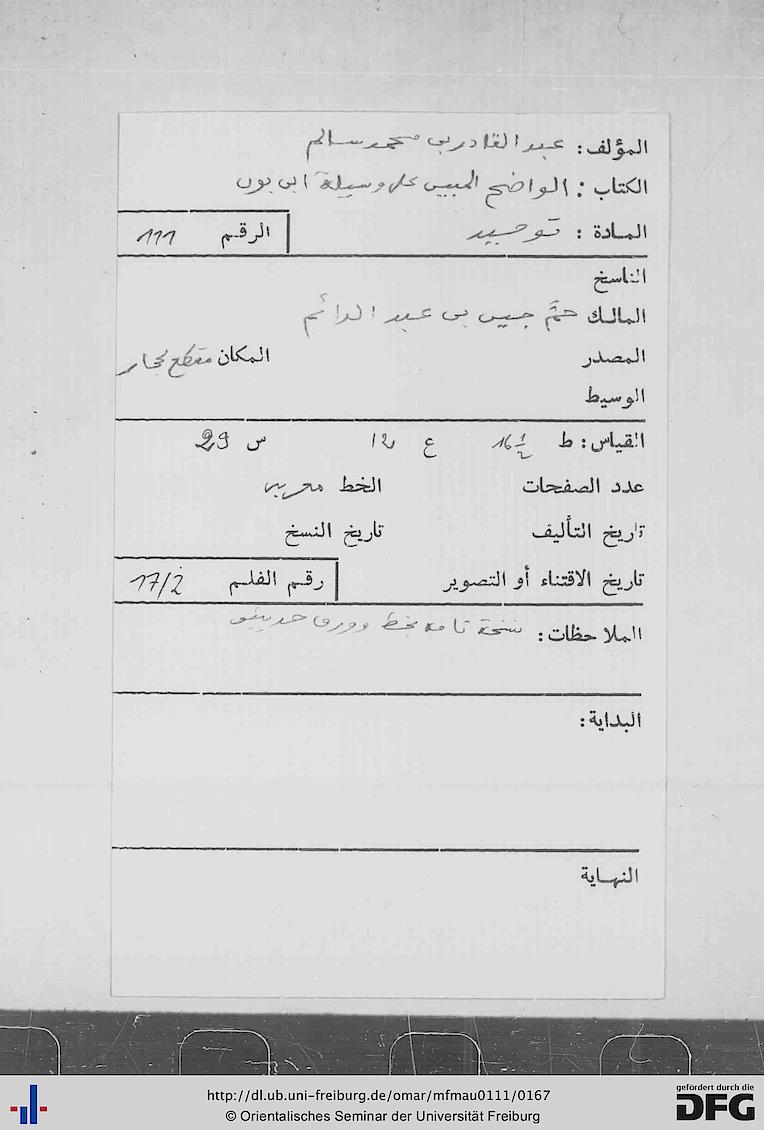 المؤلف: عبد القادر بن محمد سالم
الكتاب: الواضح المبين على وسيلة ابن بون
المادة: توحيد
الرقم 111
الناسخ
المالك بن عبد الدائم
المصدر
المكان مقطع لحجار
الوسيط
القياس: ط 16 1/2 ع 12 س 29
عدد الصفحات
الخط مغربي
تاريخ التأليف
تاريخ النسخ
تاريخ الاقتناء أو التصوير
رقم الفلم 17/2
الملاحظات: نسخة تامة بخط وورق حديثين
البداية:
النهاية
http://dl.ub.uni-freiburg.de/omar/mfmau0111/0167
© Orientalisches Seminar der Universität Freiburg
gefördert durch die
DFG